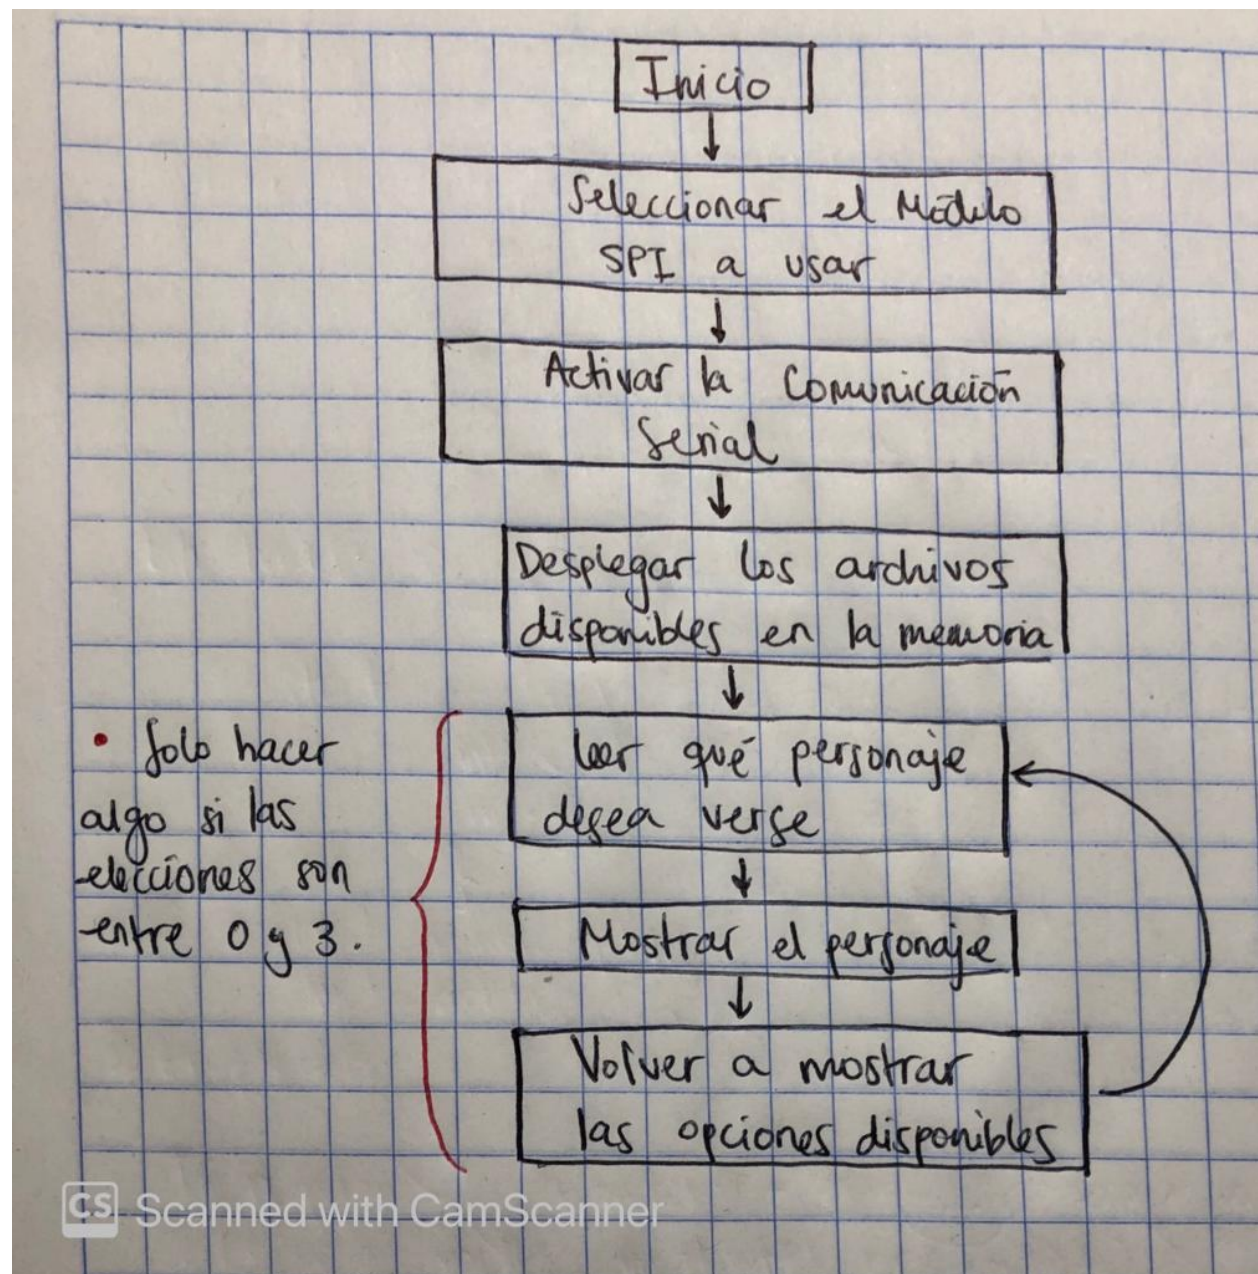 Inicio
Seleccionar el Módulo
SPI a usar
Activar la Comunicación
Serial
Desplegar los archivos
disponibles en la memoria
leer qué personaje
desea verse
Mostrar el personaje
Volver a mostrar
las opciones disponibles
• Solo hacer
algo si las
elecciones son
entre 0 y 3.
CS Scanned with CamScanner